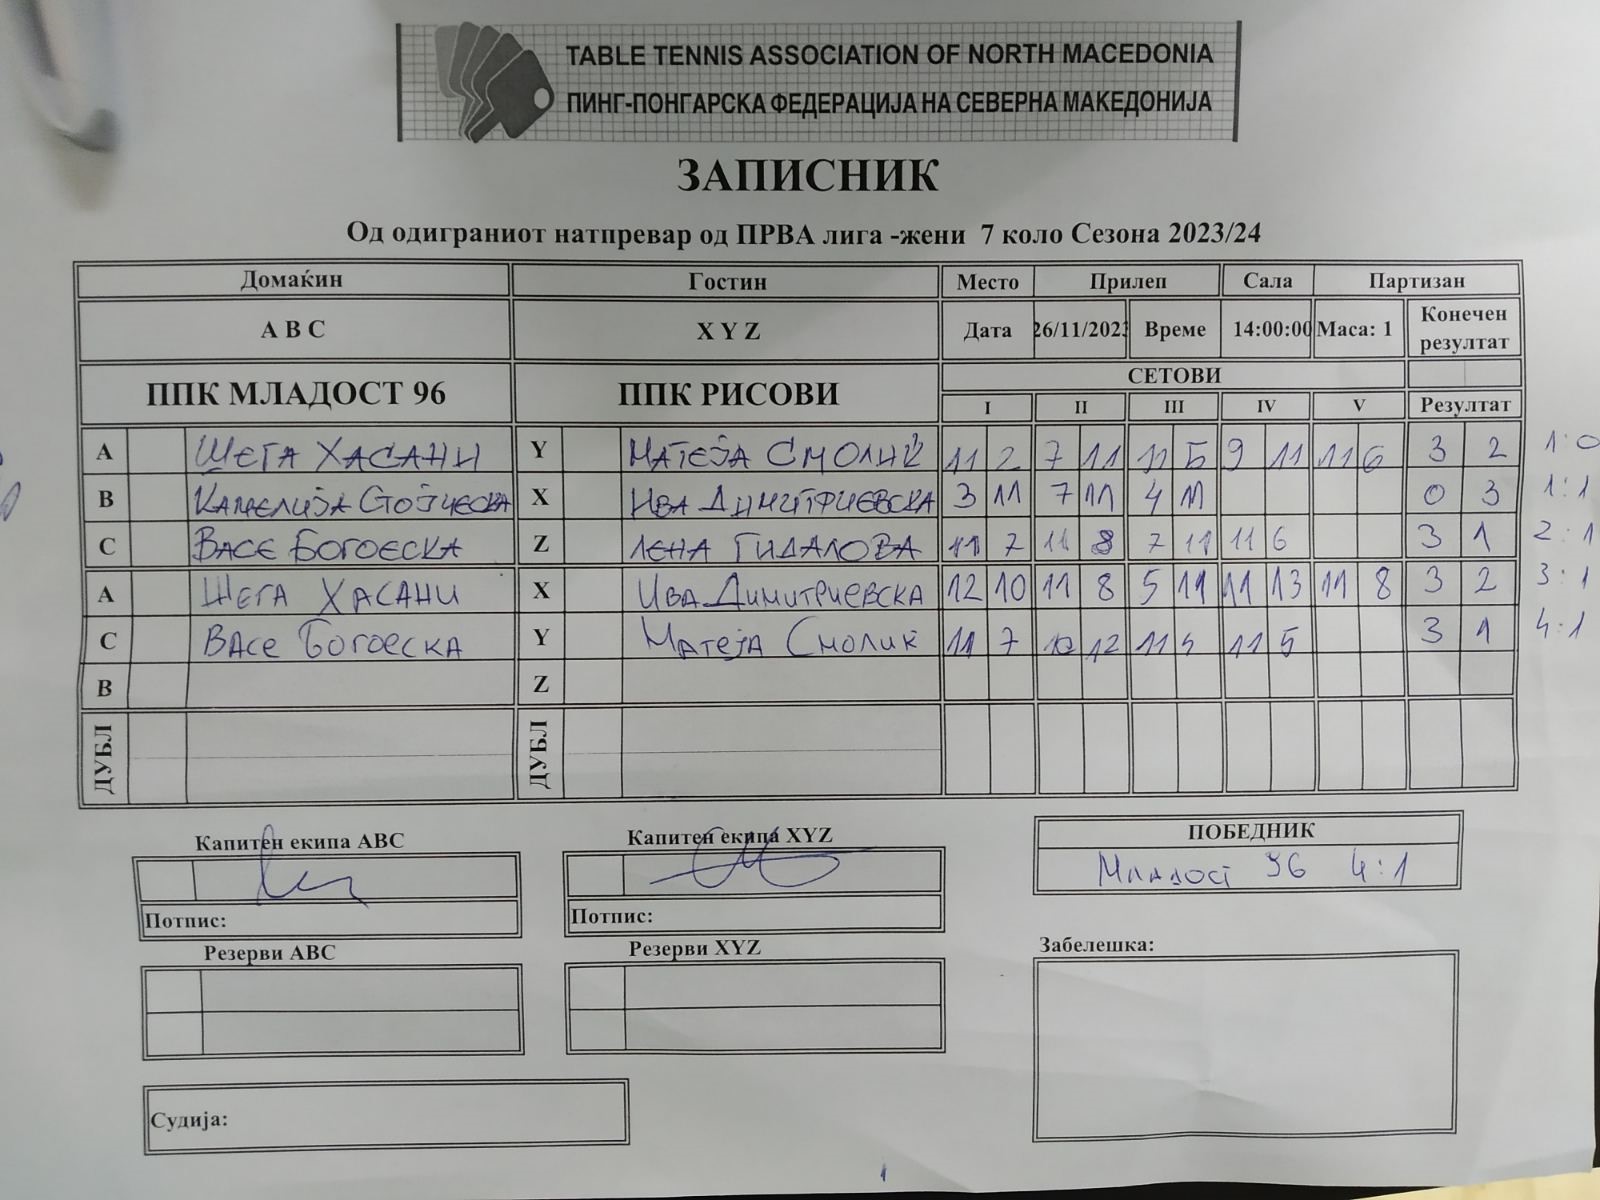 TABLE TENNIS ASSOCIATION OF NORTH MACEDONIA
ПИНГ-ПОНГАРСКА ФЕДЕРАЦИЈА НА СЕВЕРНА МАКЕДОНИЈА
ЗАПИСНИК
Од одиграниот натпревар од ПРВА лига -жени 7 коло Сезона 2023/24
Домаќин Гостин Место Прилеп Сала Партизан
A B C X Y Z Дата 26/11/2023 Време 14:00:00 Маса: 1 Конечен резултат
ППК МЛАДОСТ 96 ППК РИСОВИ СЕТОВИ
I II III IV V Резултат
A ШЕГА ХАСАНИ Y МАТЕЈА СМОЛИЌ 11 2 7 11 11 5 9 11 11 6 3 2 1:0
B КАМЕЛИЈА СТОЈЧЕСКА X ИВА ДИМИТРИЕВСКА 3 11 7 11 4 11 0 3 1:1
C ВАСЕ БОГОЕСКА Z ЛЕНА ГИДАЛОВА 11 7 11 8 7 11 11 6 3 1 2:1
A ШЕГА ХАСАНИ X ИВА ДИМИТРИЕВСКА 12 10 11 8 5 11 11 13 11 8 3 2 3:1
C ВАСЕ БОГОЕСКА Y МАТЕЈА СМОЛИЌ 11 7 10 12 11 5 11 5 3 1 4:1
B Z
ДУБЛ ДУБЛ
Капитен екипа ABC Капитен екипа XYZ ПОБЕДНИК
Младост 96 4:1
Потпис: Потпис:
Резерви ABC Резерви XYZ Забелешка:
Судија:
1